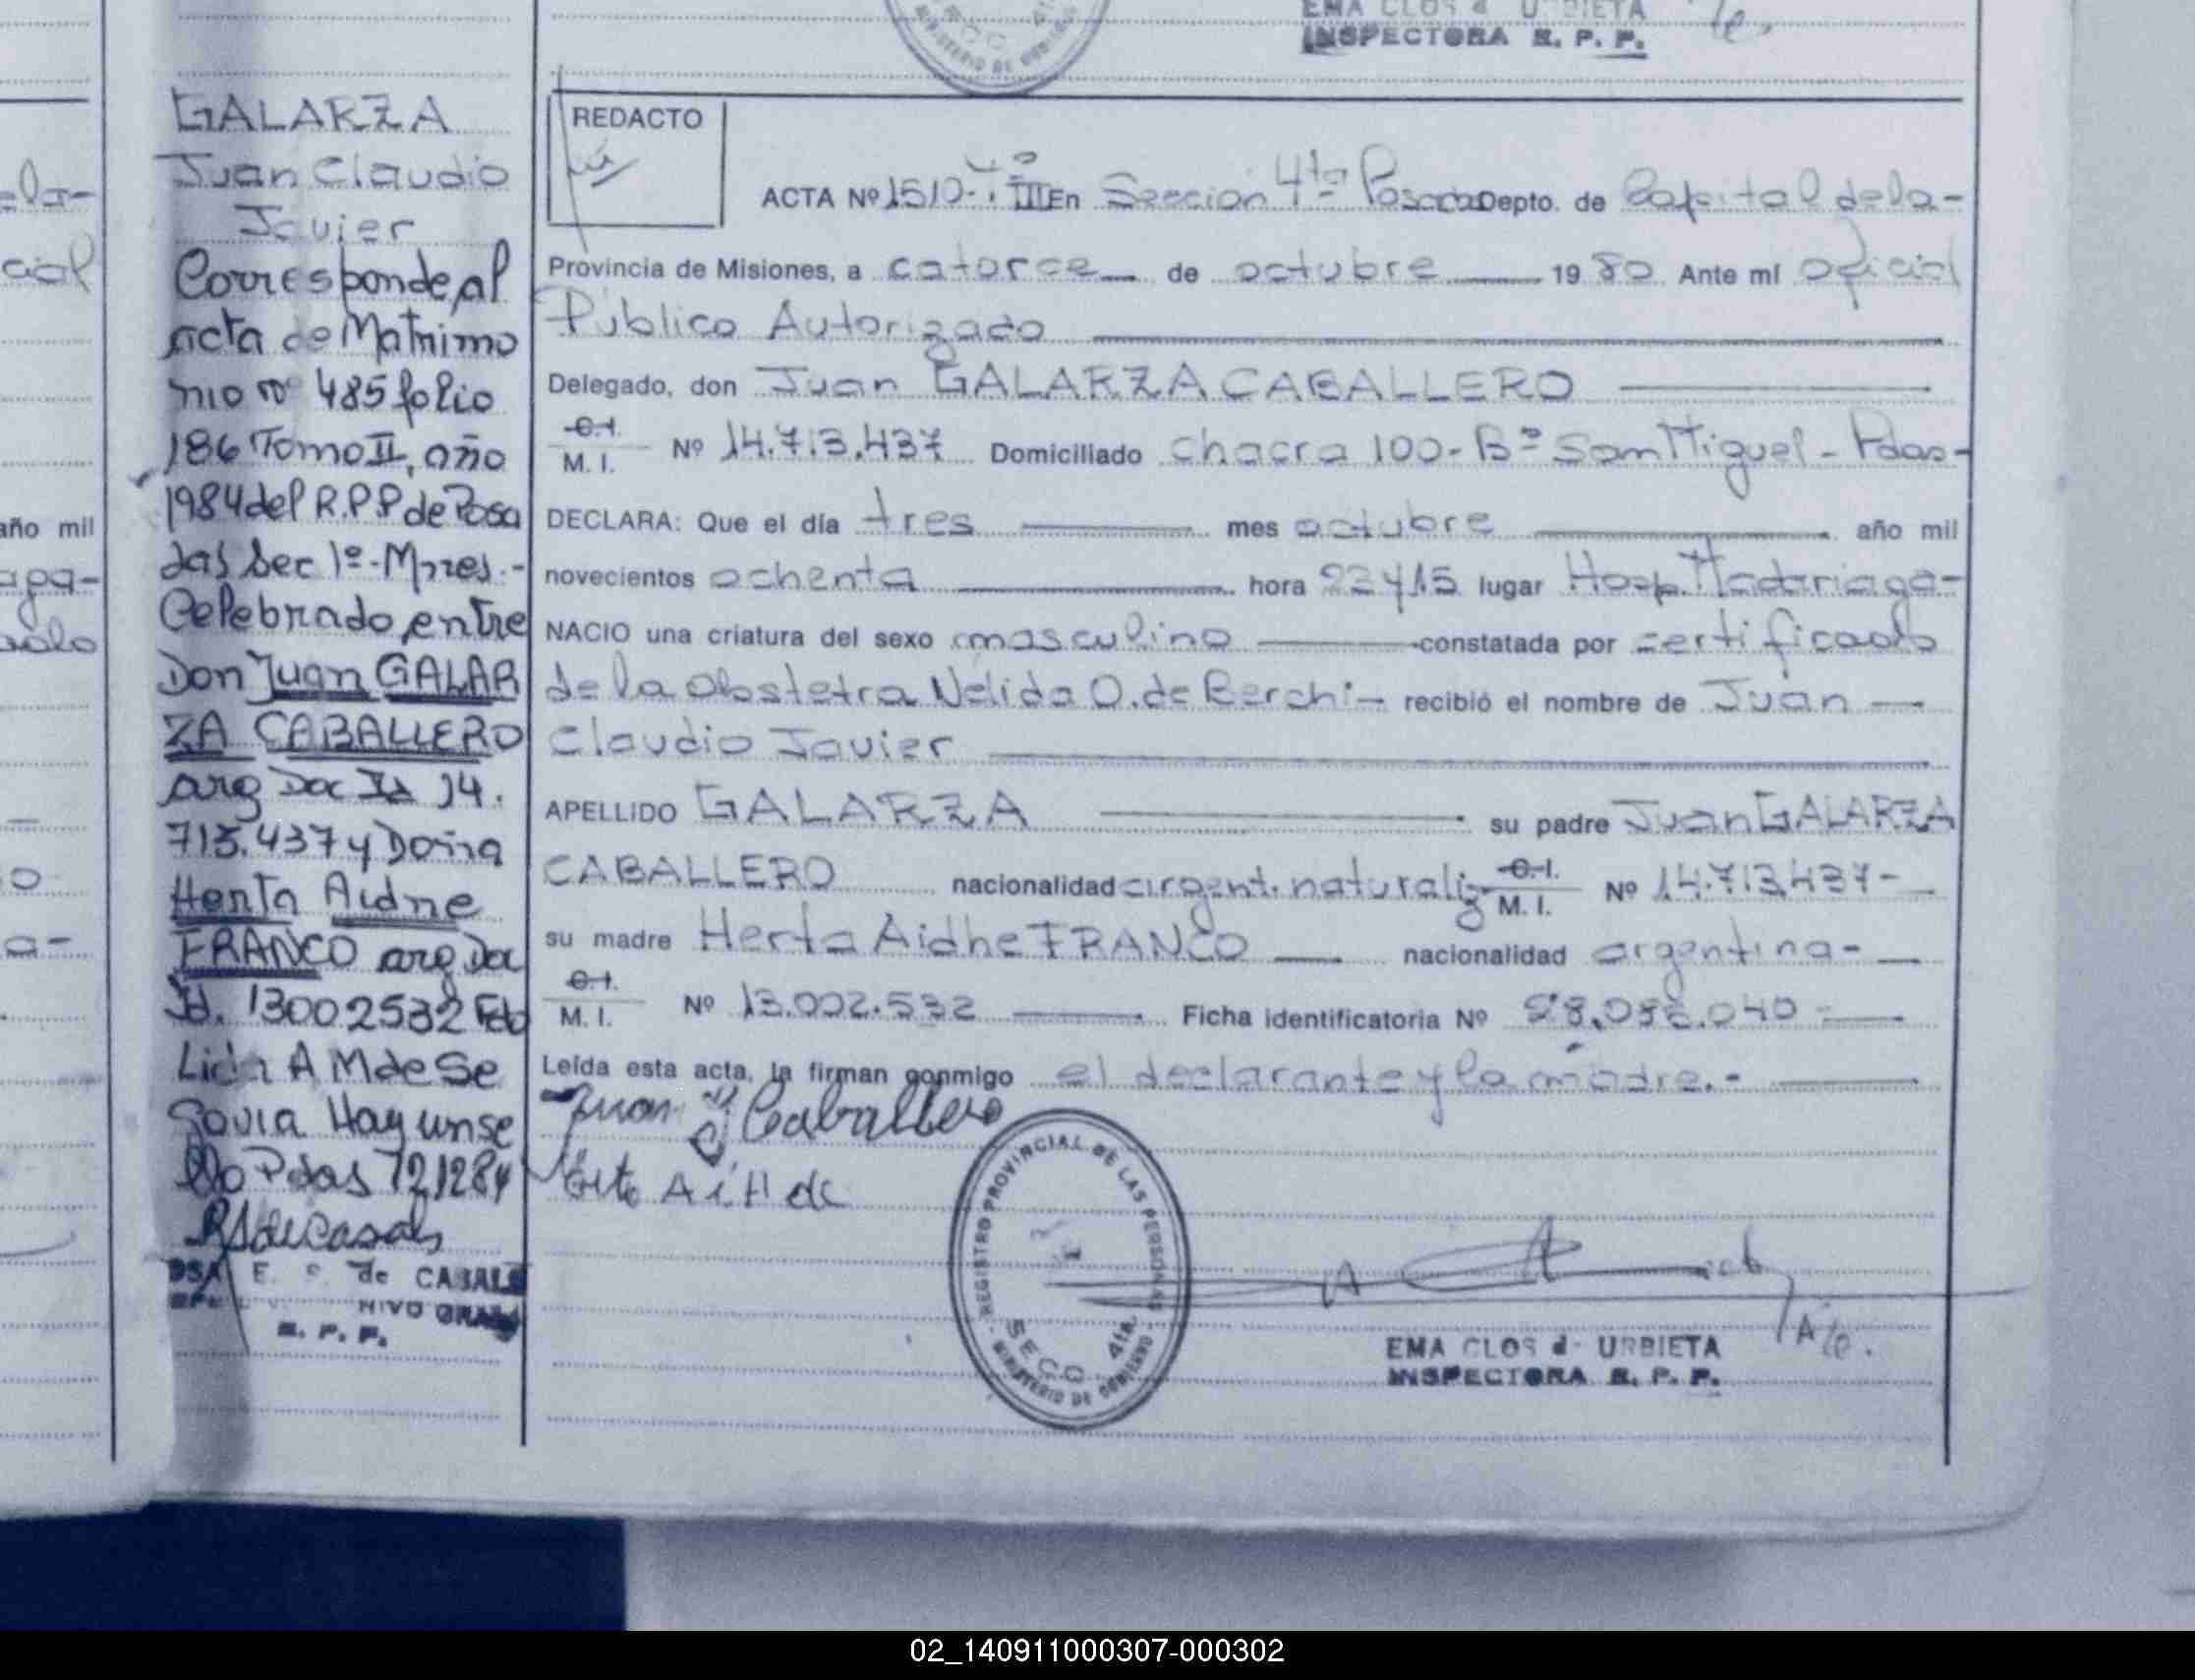 EMA CLOS d URBIETA
INSPECTORA R. P. P.
MINISTERIO DE GOBIERNO
GALARZA
Juan Claudio
Javier
Corresponde al
acta de Matrimo
nio nº 485 folio
186 Tomo II, año
1984 del R.P.P de Posa
das Sec 1º-Mnes.-
Celebrado entre
Don Juan GALAR
ZA CABALLERO
arg Doc Id 14.
713.437 y Doña
Herta Aidne
FRANCO arg Doc
Id. 13002532 Fdo
Lidia A M de Se
govia Hay un se
llo Pdas 721284
RSdeCasals
E. S. de CASALS
R. P. P.
ela-
cial
año mil
apa-
o
a-
REDACTO
ACTA Nº 1510-Tº III En Sección 4ta Posadas Depto. de Capital de la-
Provincia de Misiones, a catorce de octubre 1980 Ante mí oficial
Público Autorizado
Delegado, don Juan GALARZA CABALLERO
C.I.
M. I. Nº 14.713.437 Domiciliado Chacra 100-Bº San Miguel-Pdas-
DECLARA: Que el día tres mes octubre año mil
novecientos ochenta hora 23 y 15 lugar Hosp. Madariaga-
NACIO una criatura del sexo masculino constatada por certificado
de la Obstetra Nelida O. de Berchi- recibió el nombre de Juan
Claudio Javier
APELLIDO GALARZA su padre Juan GALARZA
CABALLERO nacionalidad argent. naturaliz C.I. M. I. Nº 14.713.437-
su madre Herta Aidhe FRANCO nacionalidad argentina-
C.I.
M. I. Nº 13.002.532 Ficha identificatoria Nº 28.
Leída esta acta, la firman conmigo el declarante y la madre.-
Juan G Caballero
REGISTRO PROVINCIAL DE LAS PERSONAS
SECC. 4ta.
MINISTERIO DE GOBIERNO
EMA CLOS d URBIETA
INSPECTORA R. P. P.
02_140911000307-000302